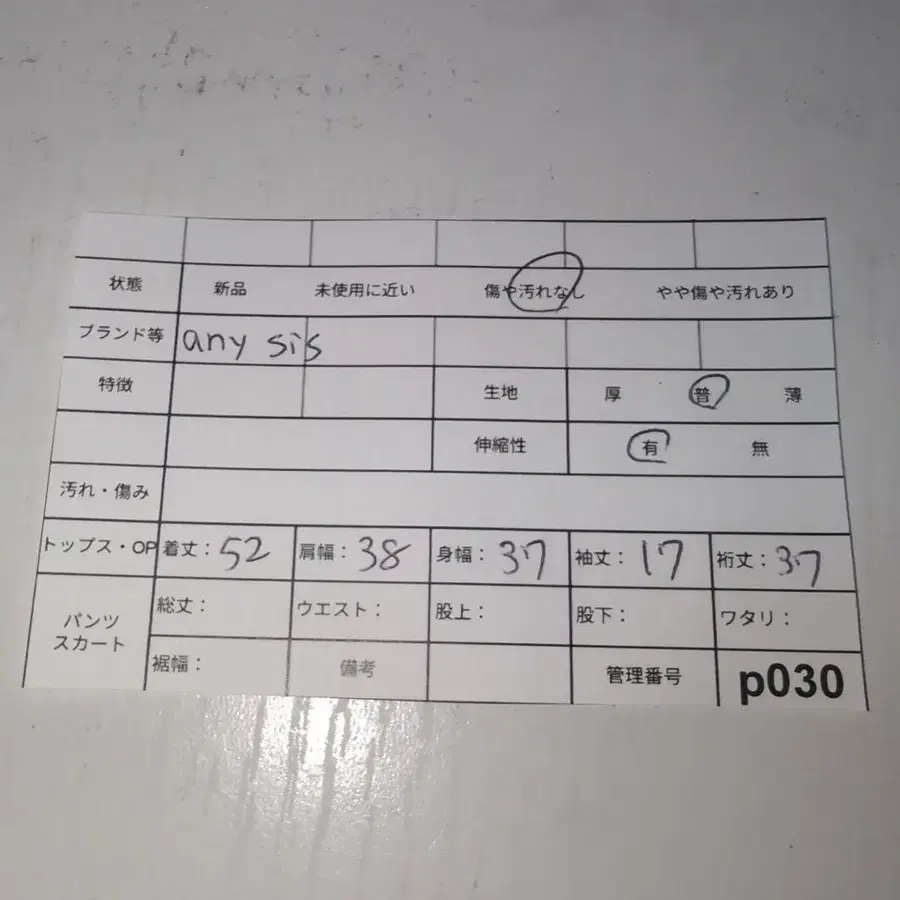 状態 新品 未使用に近い 傷や汚れなし やや傷や汚れあり
ブランド等 any sis
特徴 生地 厚 普 薄
伸縮性 有 無
汚れ・傷み
トップス・OP 着丈：52 肩幅：38 身幅：37 袖丈：17 裄丈：37
パンツ スカート 総丈： ウエスト： 股上： 股下： ワタリ：
裾幅： 備考 管理番号 p030